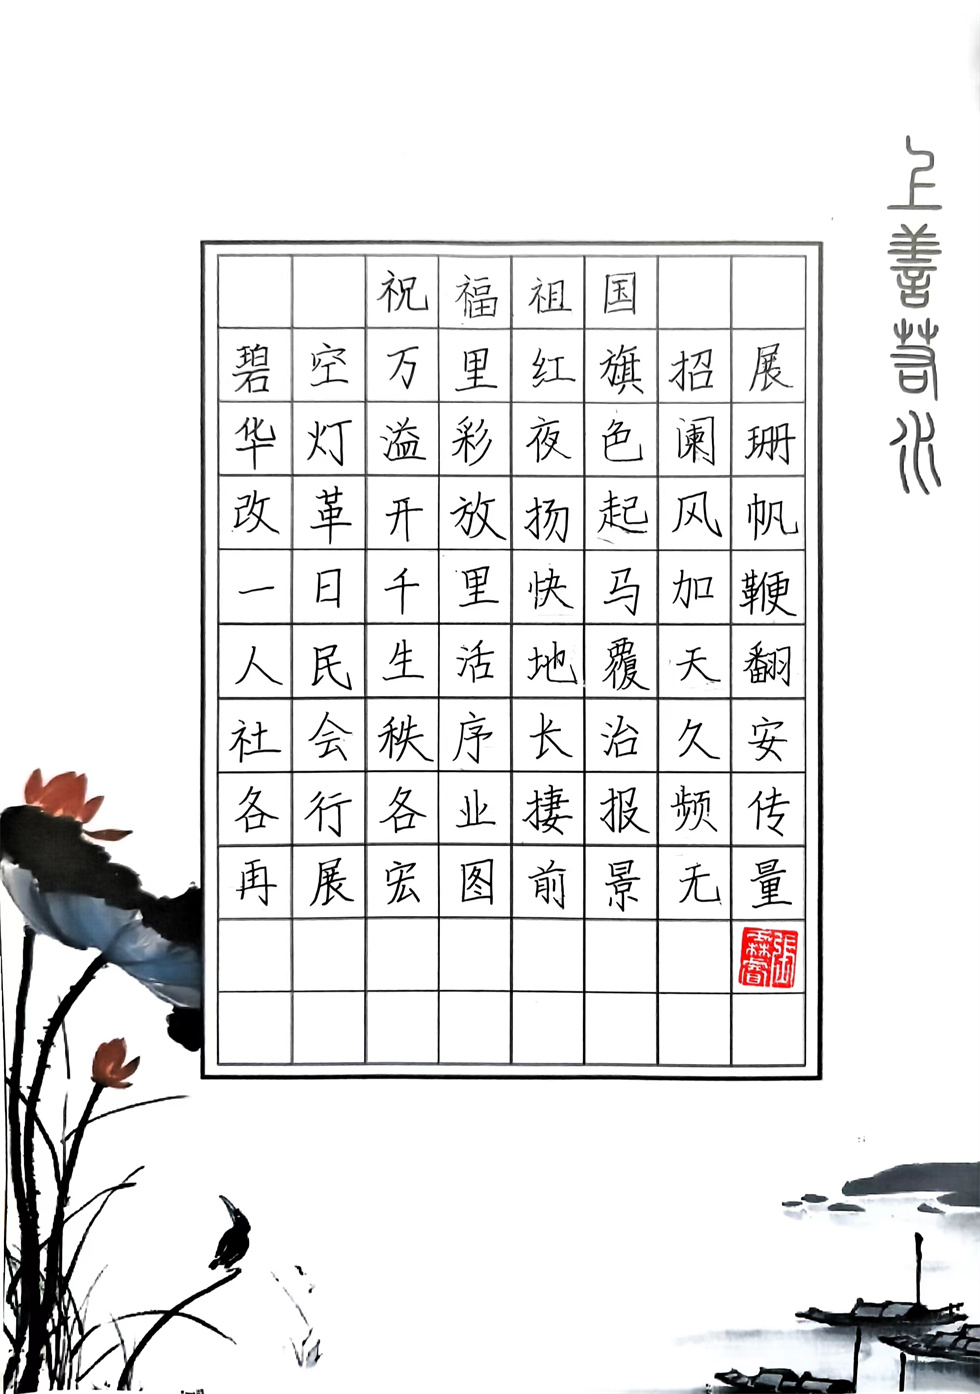 上善若水
祝福祖国
碧空万里红旗招展
华灯溢彩夜色阑珊
改革开放扬起风帆
一日千里快马加鞭
人民生活地覆天翻
社会秩序长治久安
各行各业捷报频传
再展宏图前景无量
张森睿